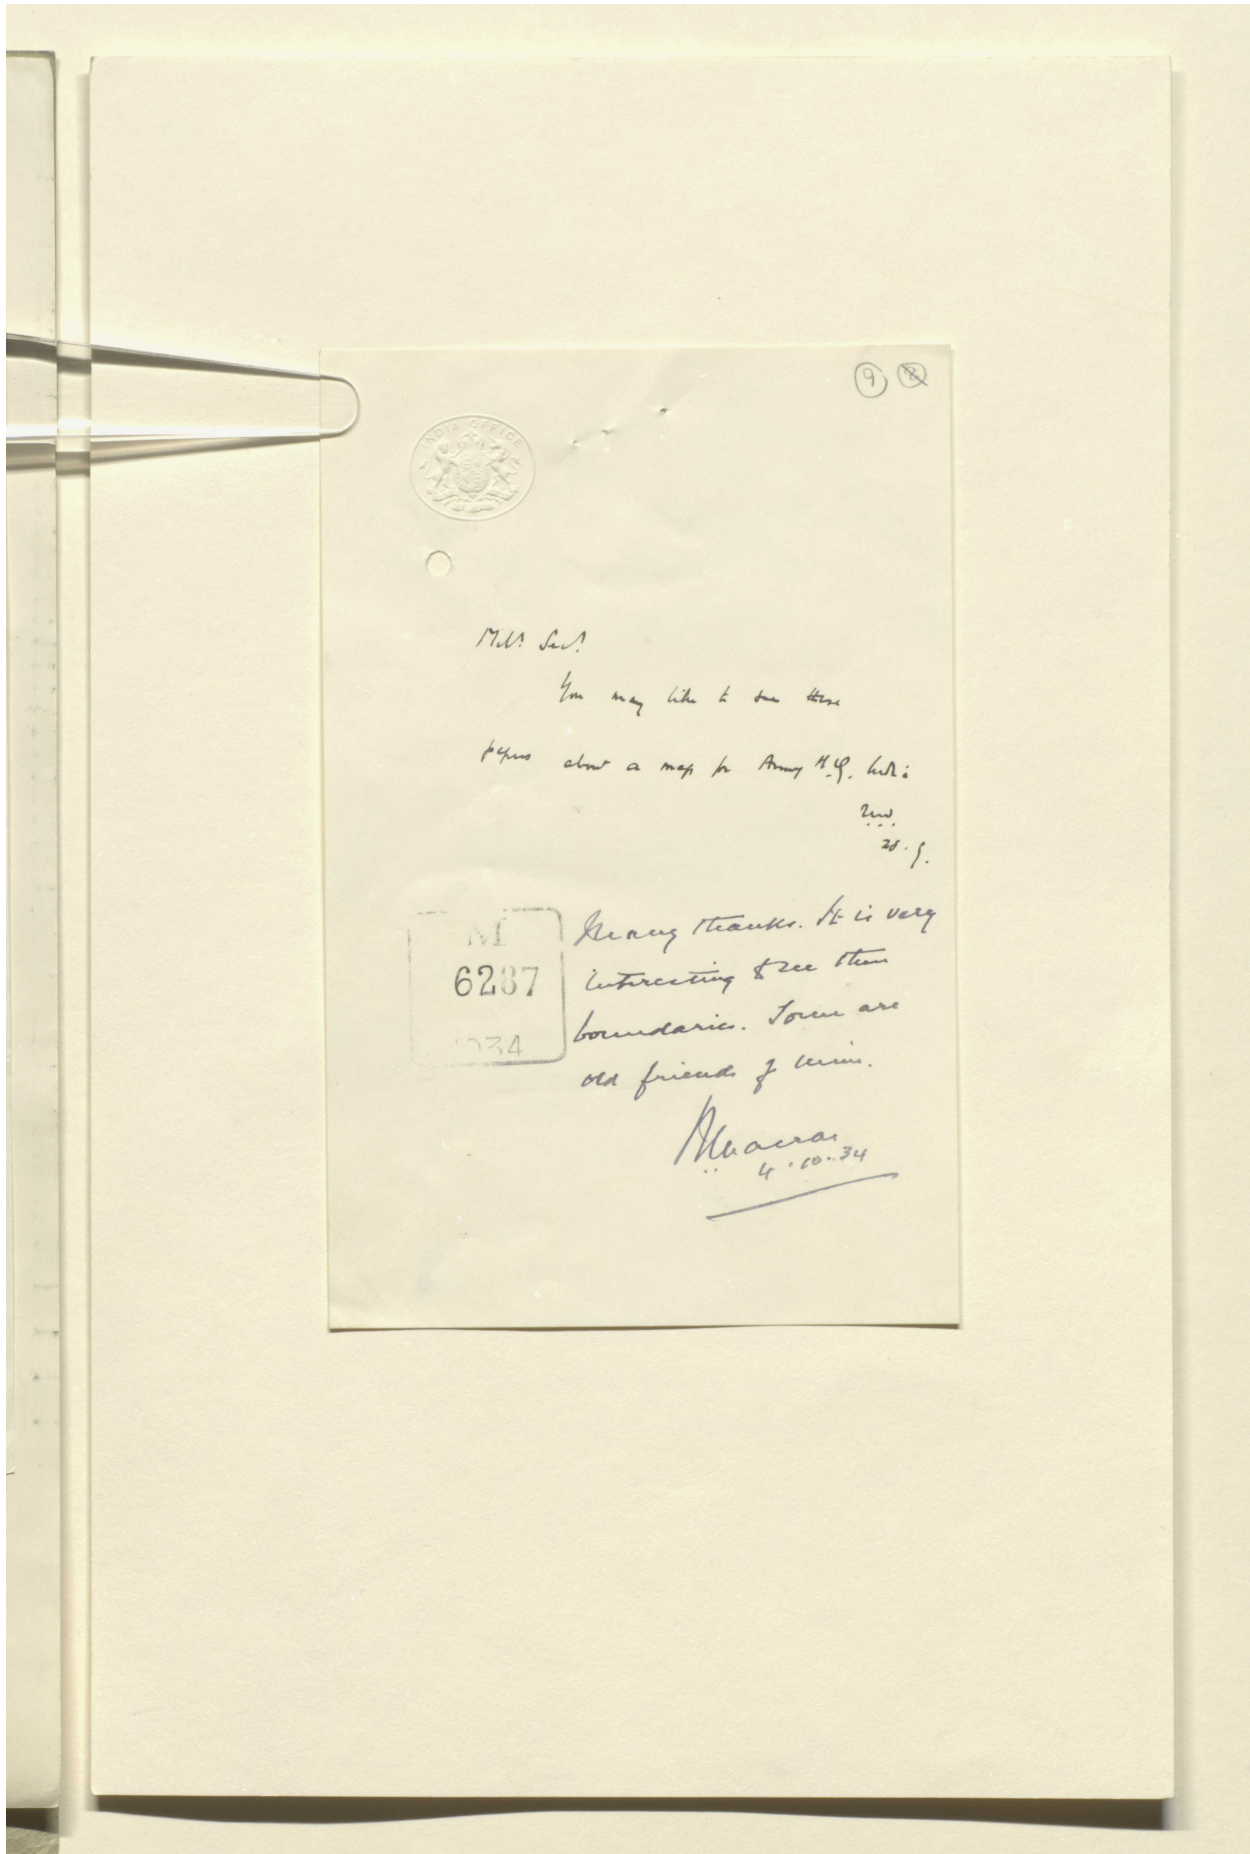 9 8
INDIA OFFICE
Mily. Secy.
You may like to see these
papers about a map for Army H.Q. India
28.9.
Many thanks. It is very
interesting to see these
boundaries. Some are
old friends of mine.
4.10.34
M
6287
1934